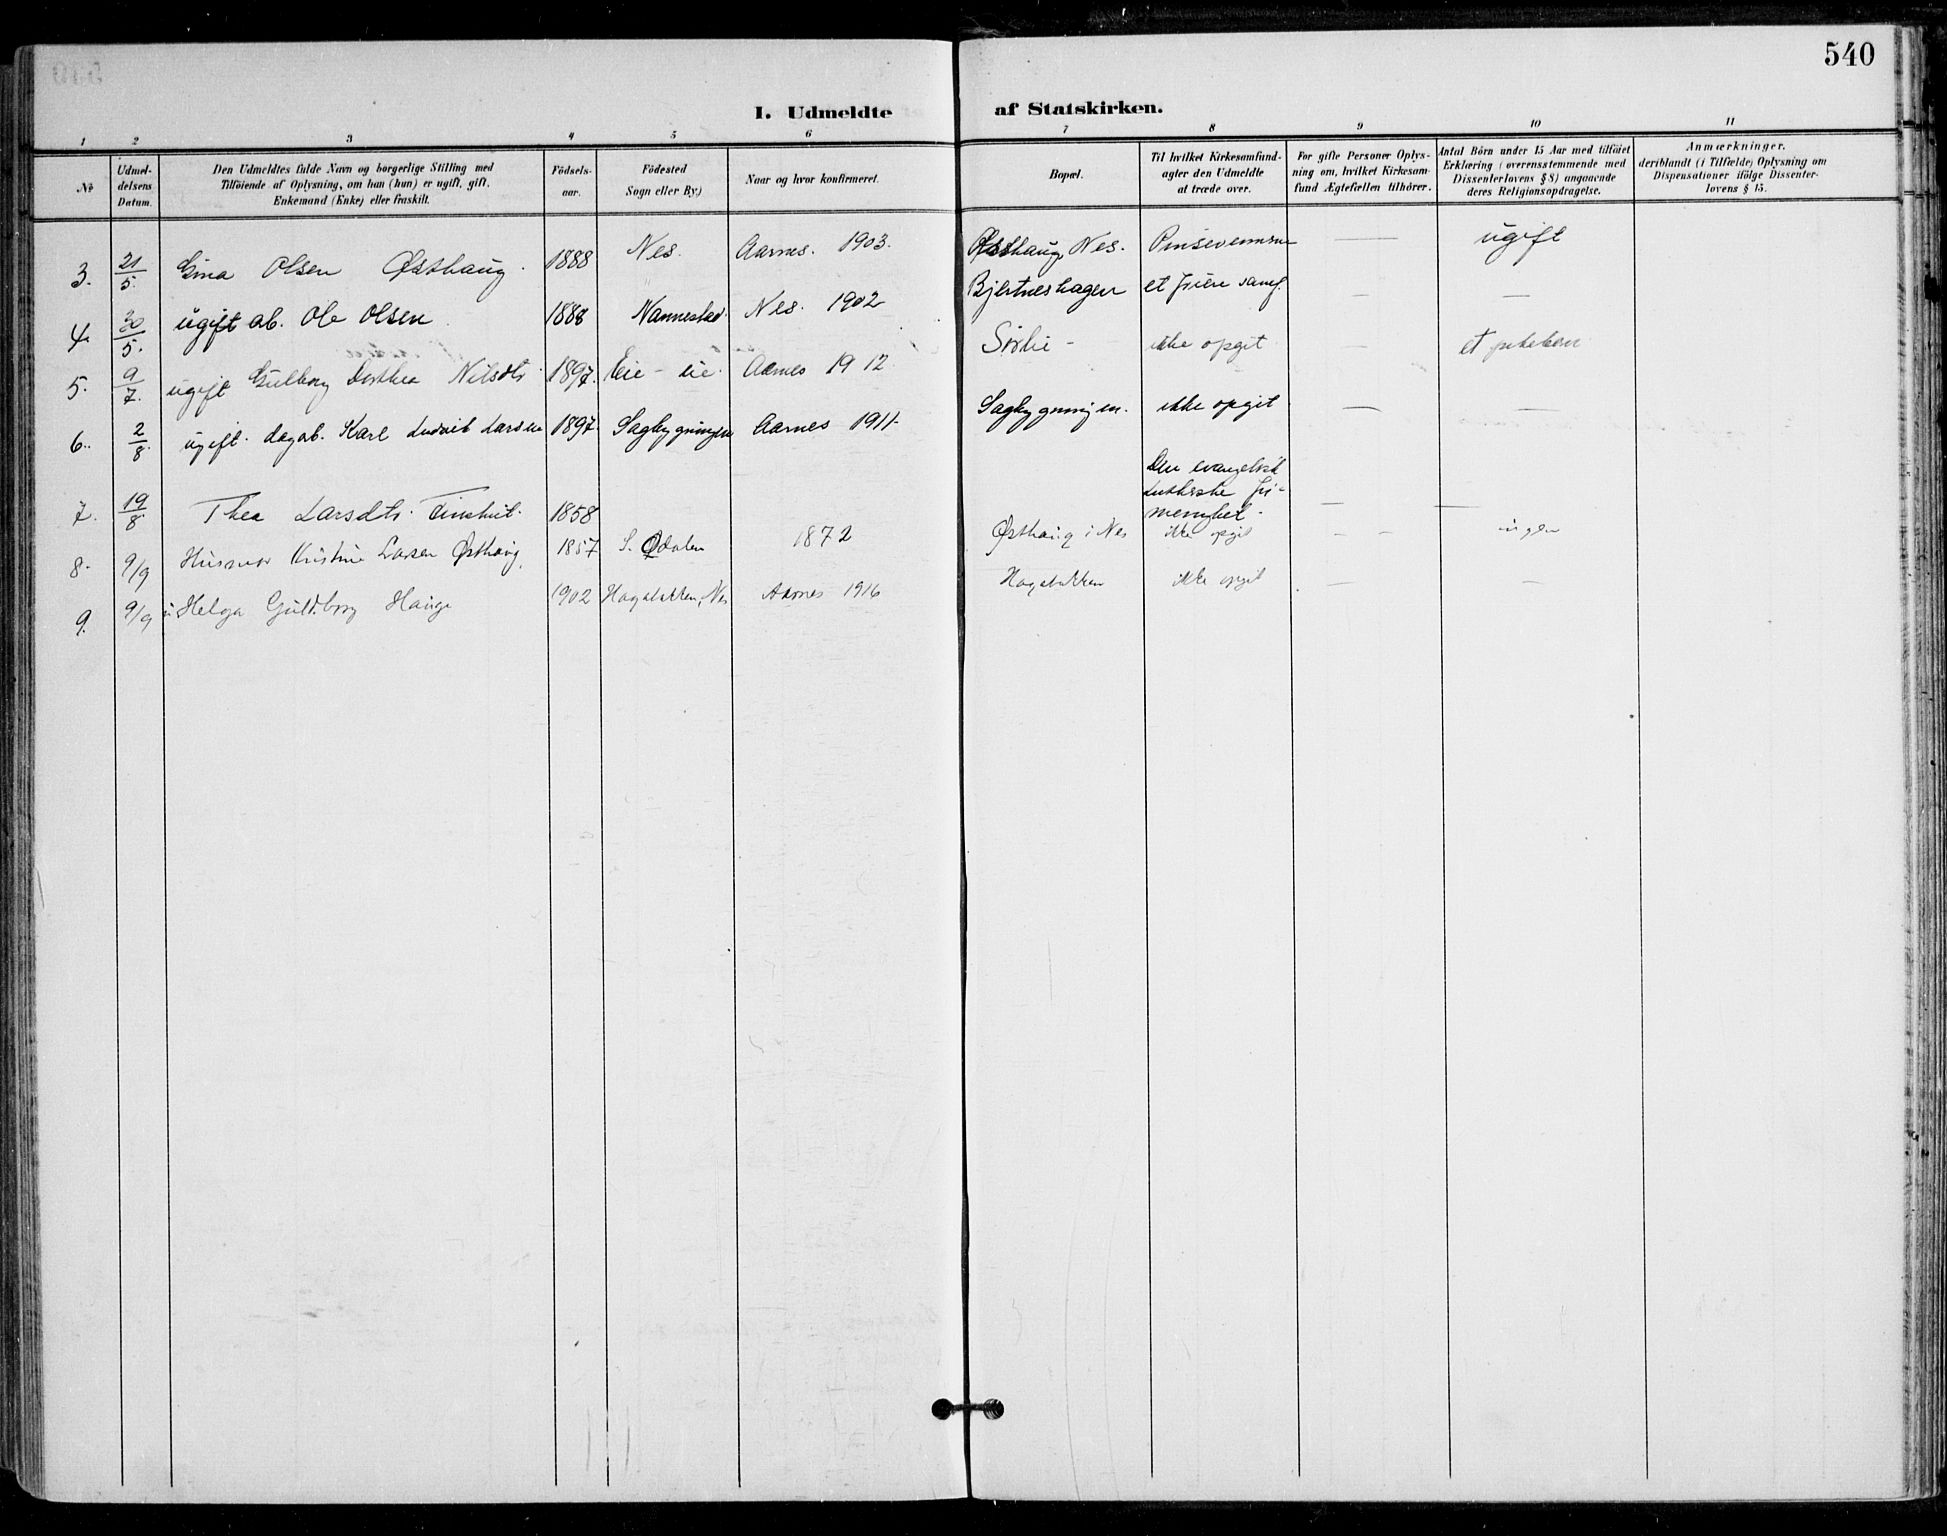 540
I. Udmeldte af Statskirken.
1 2 3 4 5 6 7 8 9 10 11
No
Udmel-
delsens
Datum.
Den Udmeldtes fulde Navn og borgerlige Stilling med
Tilföiende af Oplysning, om han (hun) er ugift, gift,
Enkemand (Enke) eller fraskilt.
Födsels-
aar.
Födested
Sogn eller By)
Naar og hvor konfirmeret.
Bopæl.
Til hvilket Kirkesamfund-
agter den Udmeldte
at træde over.
For gifte Personer Oplys-
ning om, hvilket Kirkesam-
fund Ægtefællen tilhörer.
Antal Börn under 15 Aar med tilföiet
Erklæring (overensstemmende med
Dissenterlovens § 8) angaaende
deres Religionsopdragelse.
Anmærkninger.
deriblandt (i Tilfælde) Oplysning om
Dispensationer ifölge Dissenter-
lovens § 15.
3. 21/5. Gina Olsen Østhaug. 1888 Nes. Aarnes. 1903. Østhaug, Nes. Pinsevennene — ugift
4. 30/5. ugift ab. Ole Olsen 1888 Nannestad. Nes. 1902 Bjertneshagen et friere samf. — —
5. 9/7. ugift Gulborg Dorthea Nilsdtr. 1897. Eie - eie. Aarnes 1912 Sörlie - ikke opgit —
6. 2/8. ugift. dagab. Karl Ludvik Larsen 1897. Sagbygningen Aarnes 1911- Sagbygningen. ikke opgit — —
7. 19/8. Thea Larsdtr. 1858 Den evangelisk
Lutherske fri-
menighet. — —
8. 9/9 Husmor Kristine Larsen Østhaug, 1857 S. Odalen 1872 Østhaug i Nes ikke opgit - - ingen
9. 9/9 u. Helga Guldborg Hauge 1902 Hagabakken, Nes Aarnes 1916 Hagabakken ikke opgit — —